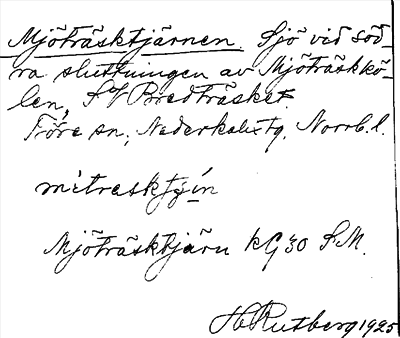 Mjöträsktjärnen. Sjö vid söd-
ra sluttningen av Mjöträskkö-
len, SV Bredträsket.
Töre sn, Nederkalix tg, Norrb. l.
Mjöträsktjärn kG 30 S.M.
H Rutberg 1925